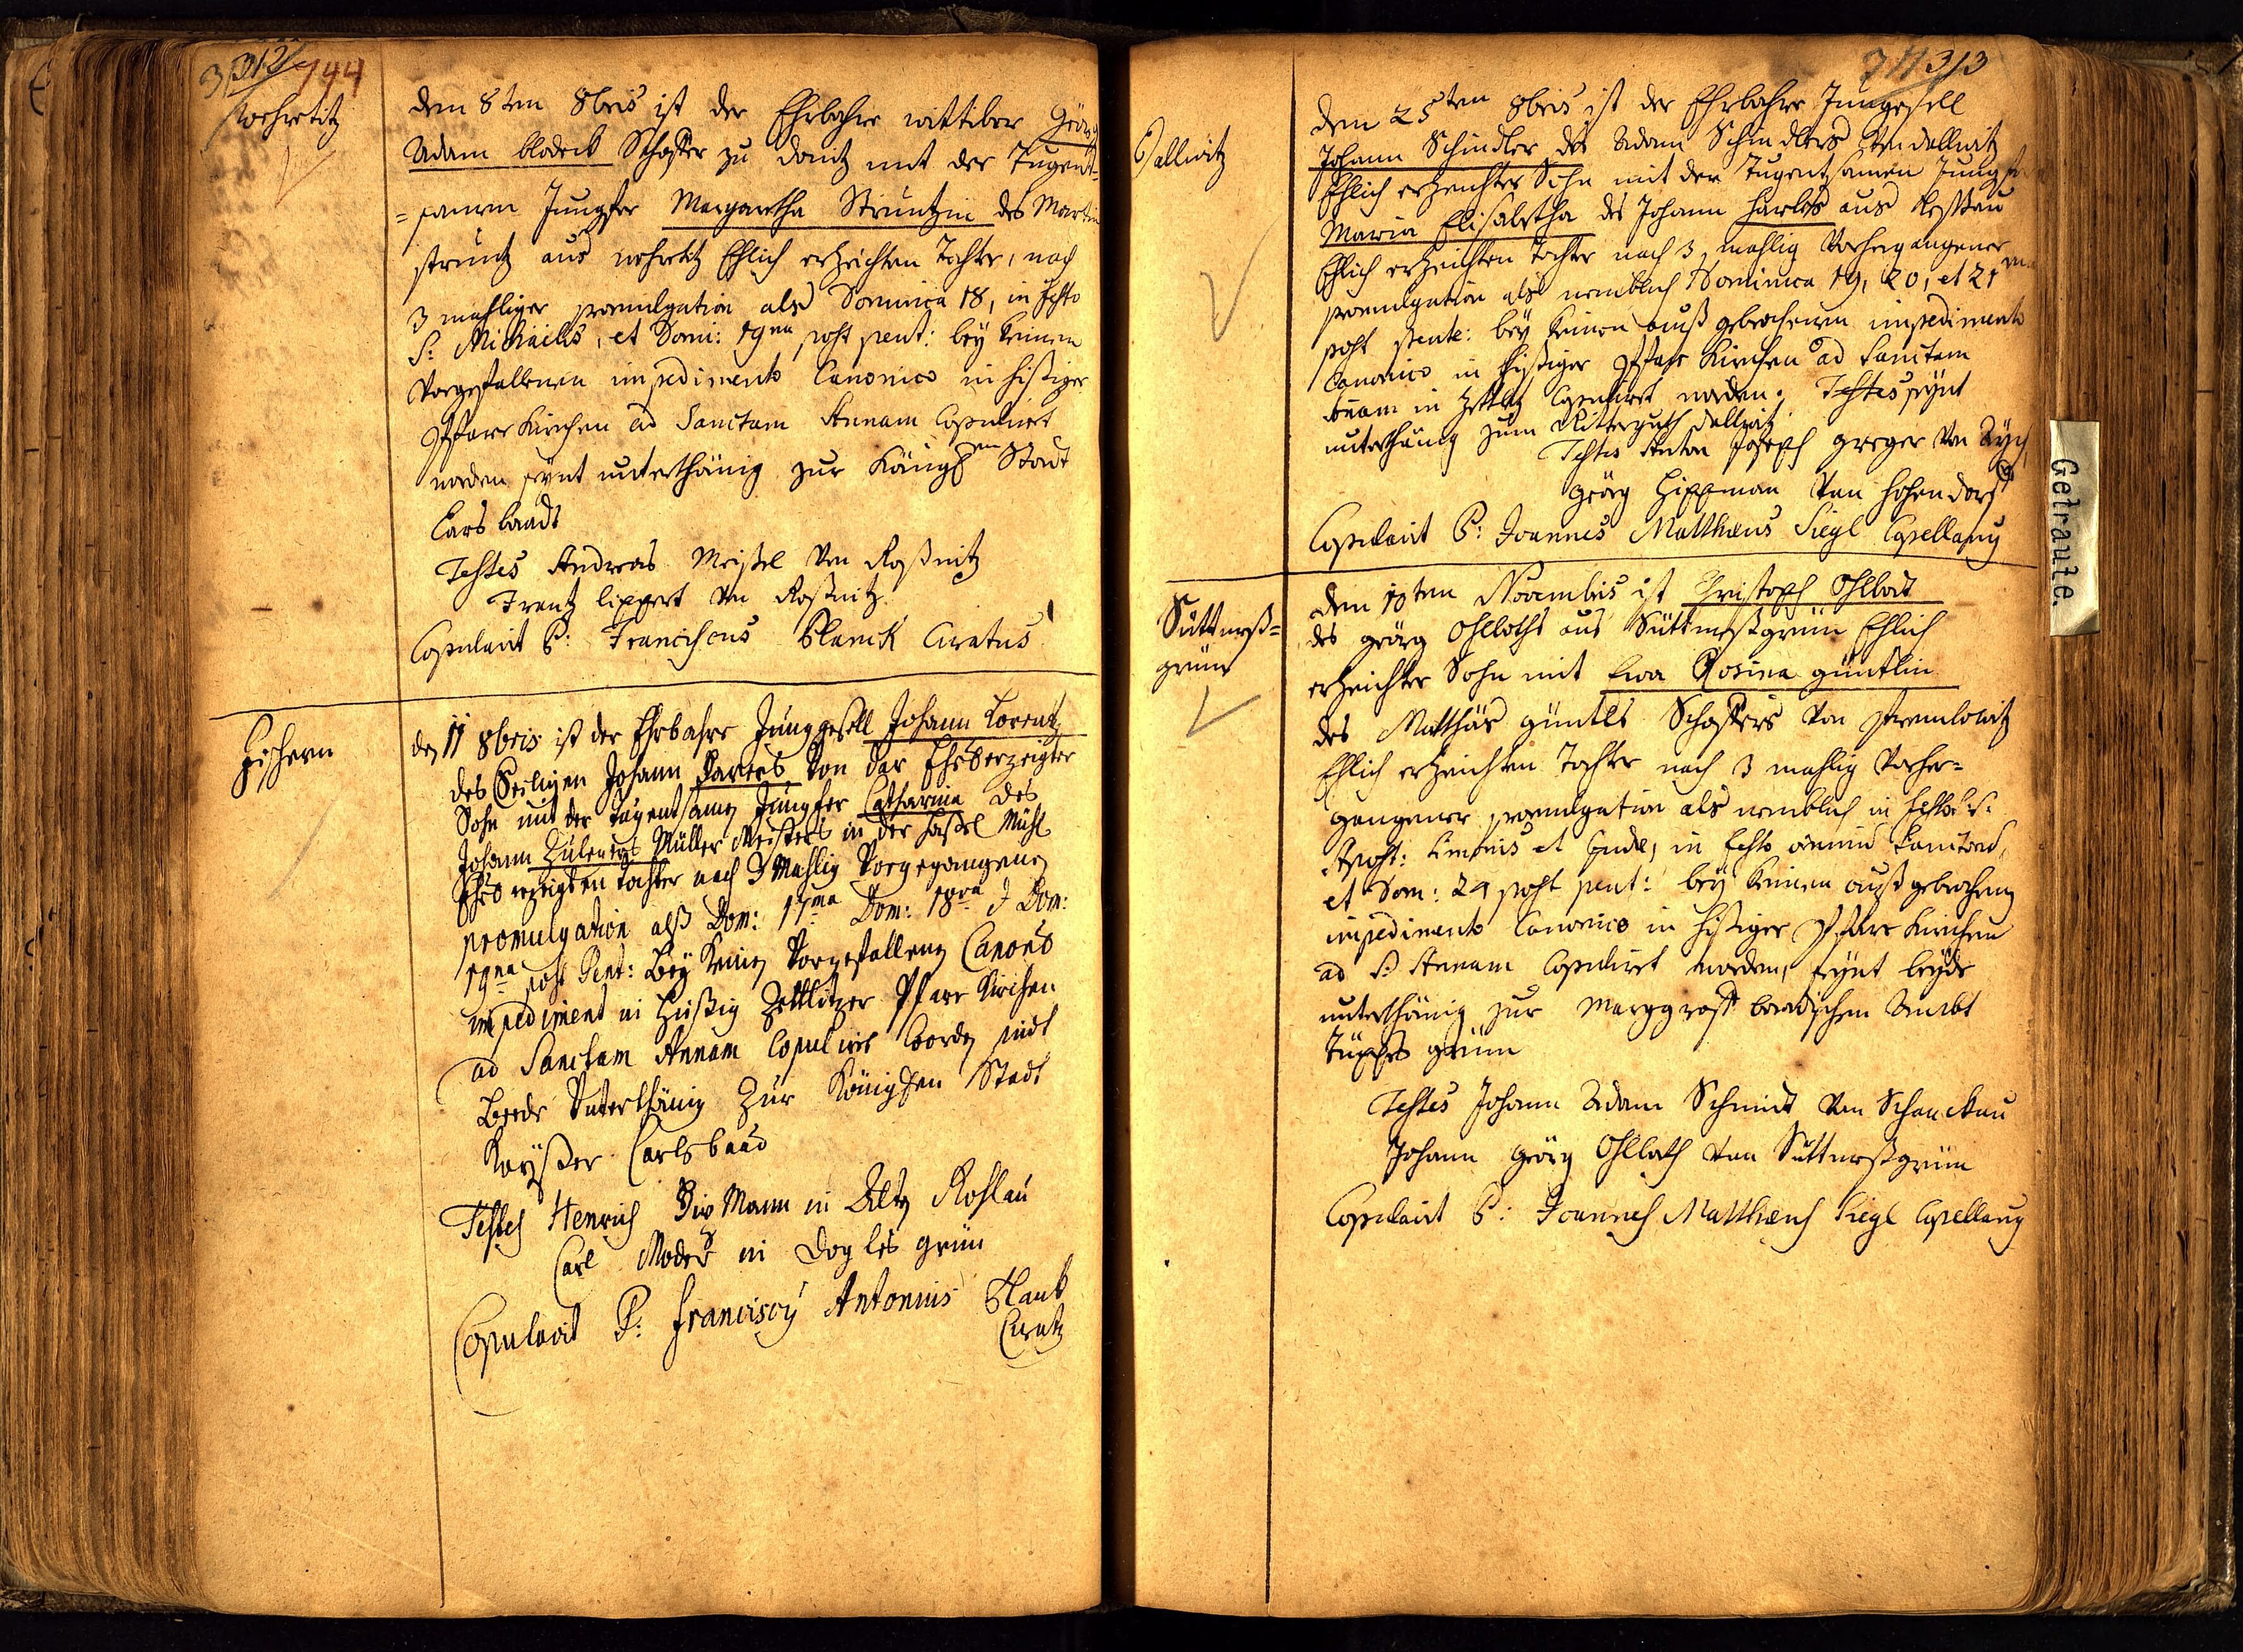 312
744
Wehwitz
dem 8ten 8bris ist der Ehrbahre wittiber Geörg
Adam blodeck Schaffer zu donitz mit der Tugent=
=samen Jungfer Margaretha Struntzin des Martin
struntz aus wehwitz Ehlich erzeichten Tochter, nach
3 mahliger promulgation als Dominica 18, in festo
S: Michaelis, et Domi: 19na post pent: bey keinen
Vorgefallenen impedimento Canonico in hiesiger
Pfarr Kirchen ad Sanctam Annam Copulirt
worden seynt unterthänig zur Königl. Stadt
Carlsbaadt
Testes Andreas Meißel von Roßnitz
Frantz lippert von Roßnitz
Copulavit P: Franciscus Planck Curatus
Fischern
den 11 8bris ist der Ehrbahre Junggesell Johann Lorentz
des Seeligen Johann von dar Ehrb erzeigter
Sohn mit der tugentsamen Jungfer Catharina des
Johann Müller Meisters in der Mühl
Ehrb erzeigten tochter nach 3 Mahlig Vorgegangenen
promulgation alß Dom: 17ma Dom: 18va & Dom:
19na post Pent: Bey keinen Vorgefallenen Canonis
impediment in Hießig Zettlitzer Pfarr Kirchen
ad Sanctam Annam Copulirt worden sindt
Beede Unterthänig Zur Königlichen Stadt
Kayßer Carlsbaad
Testes Henrich in Altz Rohlau
Carl Moder in Dogles grün
Copulavit P: Franciscus Antonius Planck
Curatus
313
Dallwitz
dem 25ten 8bris ist der Ehrbahre Junggesell
Johann Schindler des Adam Schindlers von dallwitz
Ehlich erzeichter Sohn mit der Tugentsamen Jungf
Maria Elisabetha des Johann Harles aus
Ehlich erzeichten Tochter nach 3 mahlig Vorhergangener
promulgation als nemblich Dominica 19, 20, et 21ma
post pente: bey keinen auß gebrochenen impedimento
Canonico in hießiger Pfarr Kirchen ad Sanctam
Annam in Zettlitz Copulirt worden. Testes seynt
unterthänig zum Ritterguth dallwitz
Testes Anton Joseph greger von Aych
Geörg Hippman von Hohendorf
Copulavit P: Joannes Matthaeus Siegl Capellanus
Süttmeß=
grün
Den 10ten Novembris ist Christoph Ohlbat
des geörg Ohlloths aus Süttmeßgrün Ehlich
erzeichter Sohn mit Ewa Rosina güntlin
des Matthäs güntls Schaffers von premlowitz
Ehlich erzeichten Tochter nach 3 mahlig Vorher=
gangener promulgation als nemblich in festo S.S.
Apost: Simonis et Judae, in festo omnium Sanctorum,
et Dom: 24 post pent: bey keinen außgebrochenen
impedimento Canonico in hießiger Pfarr Kirchen
ad S: Annam Copulirt worden, seynt beyde
unterthänig zur Marggraff baadischen Ambt
Tüppeles grün
Testes Johann Adam Schmidt von Schanckau
Johann Geörg Ohllath von Süttmeßgrün
Copulavit P: Joannes Matthaeus Siegl Capellanus
Getraute.